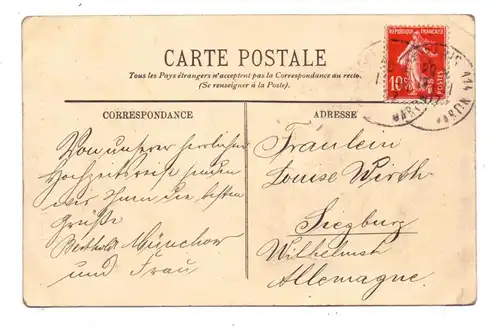 CARTE POSTALE
Tous les Pays étrangers n'acceptent pas la Correspondance au recto.
(Se renseigner à la Poste).
REPUBLIQUE FRANÇAISE
10c
POSTES
CORRESPONDANCE
Von unserer herrlichen
Hochzeitsreise senden
wir Ihnen die besten
Grüße
Berthold Münchow
und Frau
ADRESSE
Fräulein
Louise Wirth
Siegburg
Wilhelmstr
Allemagne.